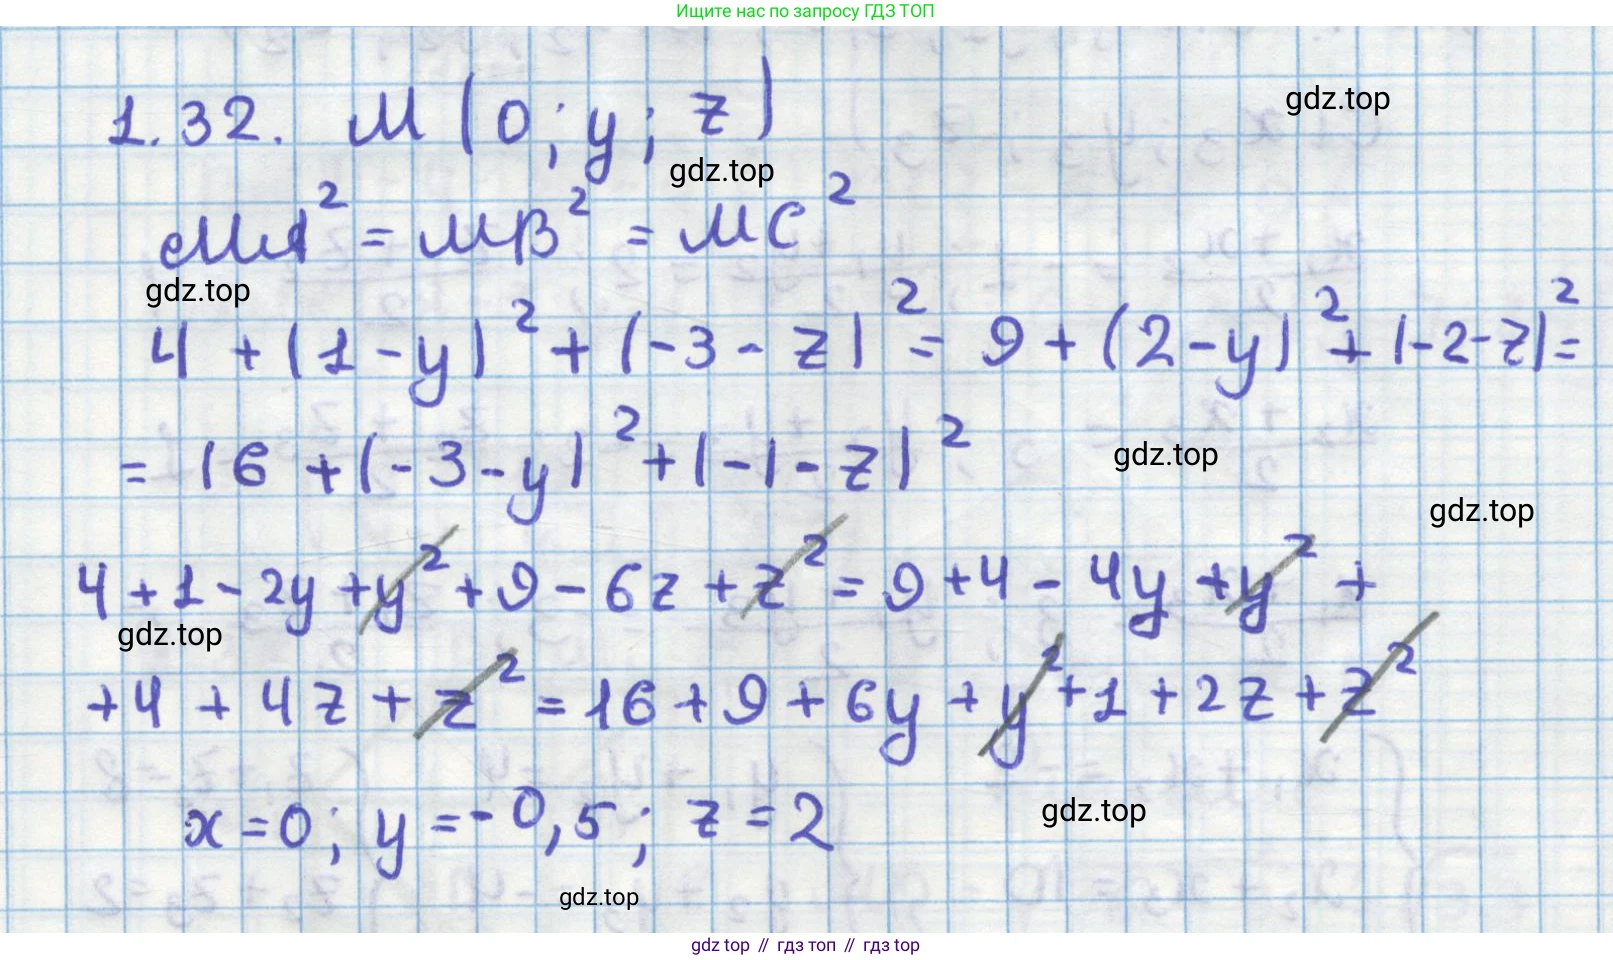 Ищите нас по запросу ГДЗ ТОП
1.32. M (0; y; z)
gdz.top
gdz.top
MA² = MB² = MC²
gdz.top
4 + (1 - y)² + (-3 - z)² = 9 + (2 - y)² + (-2 - z)² =
= 16 + (-3 - y)² + (-1 - z)²
gdz.top
gdz.top
4 + 1 - 2y + y² + 9 - 6z + z² = 9 + 4 - 4y + y² +
gdz.top
+ 4 + 4z + z² = 16 + 9 + 6y + y² + 1 + 2z + z²
x = 0; y = -0,5; z = 2
gdz.top
gdz.top
gdz top // гдз топ // гдз top